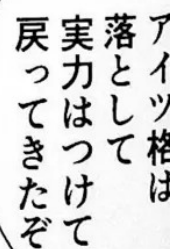 アイツ格は
落として
実力はつけて
戻ってきたぞ